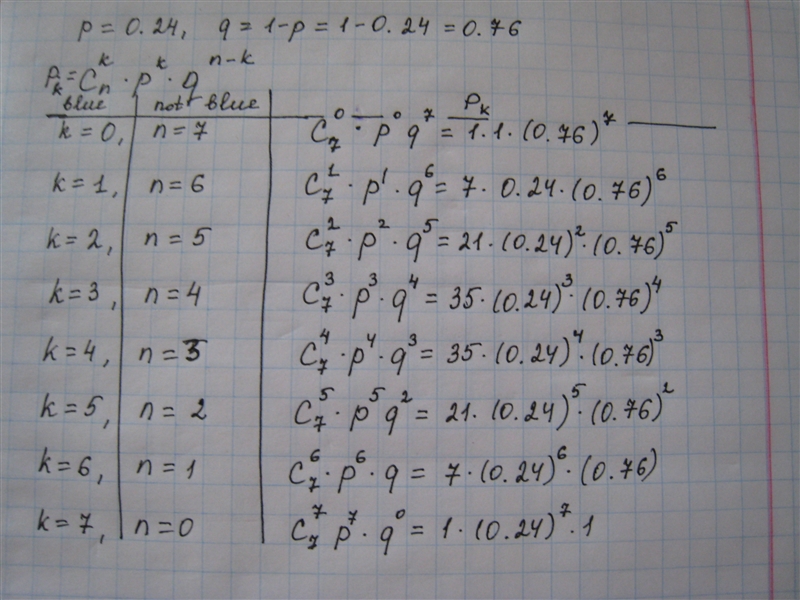 p = 0.24, q = 1-p = 1-0.24 = 0.76
P_k = C_n^k · p^k · q^{n-k}
blue not blue P_k
k = 0, n = 7 C_7^0 · p^0 q^7 = 1·1·(0.76)^7
k = 1, n = 6 C_7^1 · p^1 · q^6 = 7 · 0.24·(0.76)^6
k = 2, n = 5 C_7^2 · p^2 · q^5 = 21·(0.24)^2·(0.76)^5
k = 3, n = 4 C_7^3 · p^3 · q^4 = 35·(0.24)^3·(0.76)^4
k = 4, n = 3 C_7^4 · p^4 · q^3 = 35·(0.24)^4·(0.76)^3
k = 5, n = 2 C_7^5 · p^5 q^2 = 21·(0.24)^5·(0.76)^2
k = 6, n = 1 C_7^6 · p^6 · q = 7·(0.24)^6·(0.76)
k = 7, n = 0 C_7^7 p^7 · q^0 = 1·(0.24)^7·1